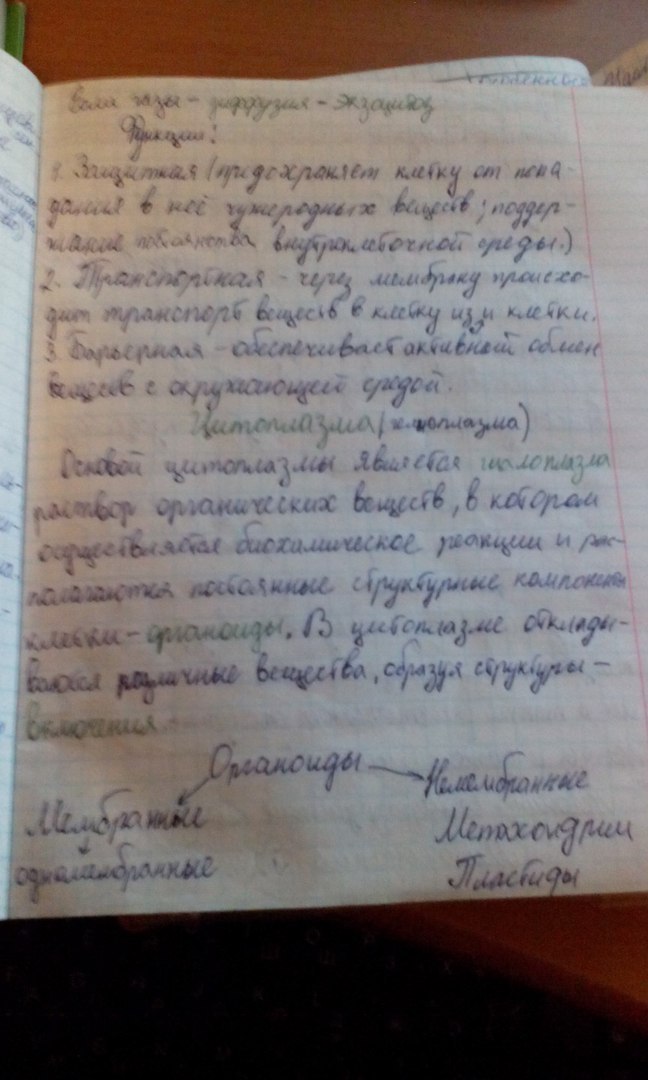 Вода газы - диффузия - экзоцитоз
Функции:
1. Защитная (предохраняет клетку от попа-
дания в неё чужеродных веществ; поддер-
жание постоянства внутриклеточной среды.)
2. Транспортная - через мембрану происхо-
дит транспорт веществ в клетку из и клетки.
3. Барьерная - обеспечивает активный обмен
веществ с окружающей средой.
Цитоплазма (гиалоплазма)
Основой цитоплазмы является гиалоплазма
раствор органических веществ, в котором
осуществляется биохимическое реакции и рас-
полагаются постоянные структурные компоненты
клетки - органоиды. В цитоплазме отклады-
ваются различные вещества, образуя структуры -
включения.
Органоиды
Немембранные
Мембранные
Метахондрии
одномембранные
Пластиды